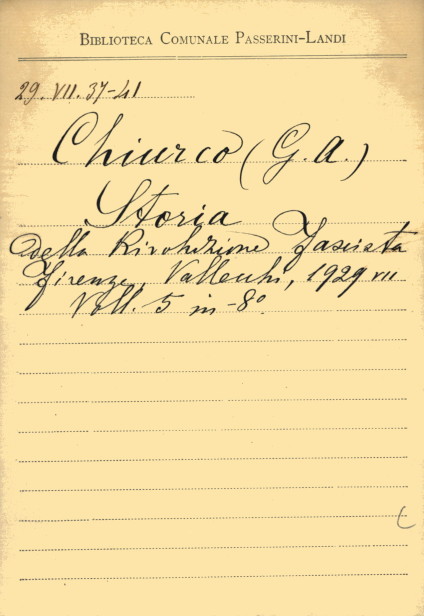 BIBLIOTECA COMUNALE PASSERINI-LANDI
29. VII. 37-41
Chiurco (G. A.)
Storia
della Rivoluzione Fascista
Firenze, Vallecchi, 1929 VII
Voll. 5 in -8°.